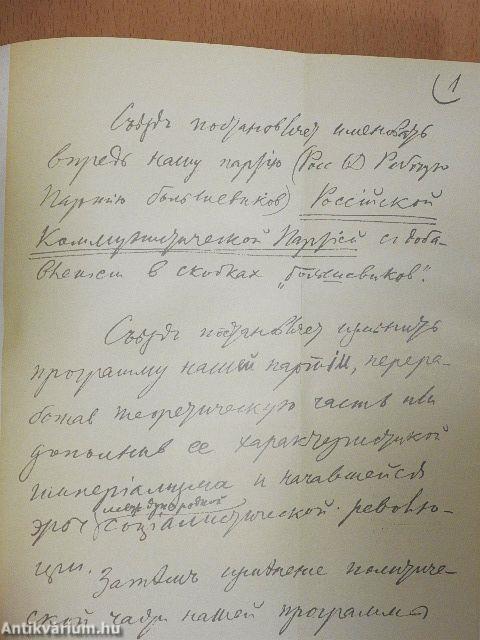 1
Съездъ постановляет именовать
впредь нашу партию (Росс С Д Рабочую
Партию большевиков) Россійской
Коммунистической Партіей с доба-
влением в скобках „большевиков".
Съездъ постановляет изменить
программу нашей партіи, перера-
ботав теоретическую часть или
дополнив ее характеристикой
имперіализма и начавшейся
международной
эры соціалистической револю-
ции.
Затемъ изменение политиче-
ской части нашей программы
Antikvarium.hu